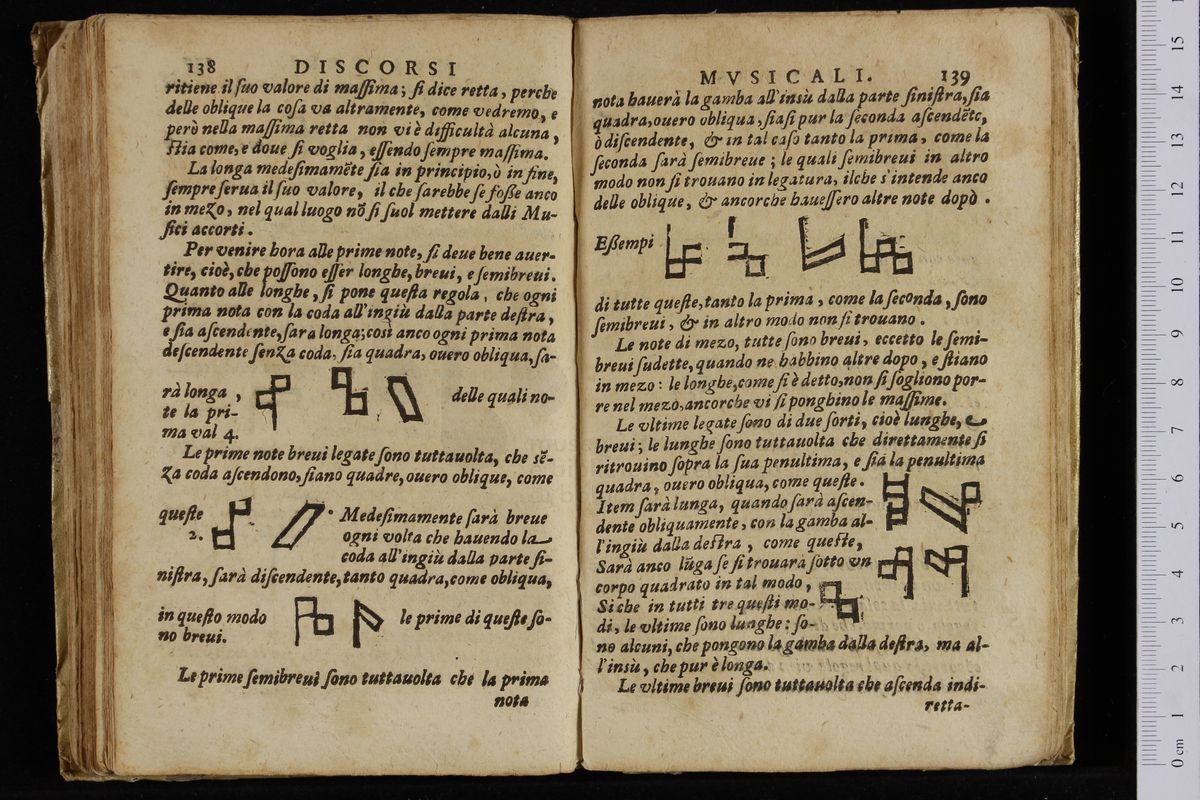 138 DISCORSI
ritiene il ſuo valore di maſſima; ſi dice retta, perche
delle oblique la coſa va altramente, come vedremo, e
però nella maſſima retta non vi è difficultà alcuna,
ſtia come, e doue ſi voglia, eſſendo ſempre maſſima.
La longa medeſimamẽte ſia in principio, ò in fine,
ſempre ſerua il ſuo valore, il che ſarebbe ſe foſſe anco
in mezo, nel qual luogo nõ ſi ſuol mettere dalli Mu-
ſici accorti.
Per venire hora alle prime note, ſi deue bene auer-
tire, cioè, che poſſono eſſer longhe, breui, e ſemibreui.
Quanto alle longhe, ſi pone queſta regola, che ogni
prima nota con la coda all'ingiù dalla parte deſtra,
e ſia aſcendente, ſarà longa; così anco ogni prima nota
deſcendente ſenza coda, ſia quadra, ouero obliqua, ſa-
rà longa, delle quali no-
te la pri-
ma val 4.
Le prime note breui legate ſono tuttauolta, che sẽ-
za coda aſcendono, ſiano quadre, ouero oblique, come
queſte Medeſimamente ſarà breue
2. ogni volta che hauendo la
coda all'ingiù dalla parte ſi-
niſtra, ſarà diſcendente, tanto quadra, come obliqua,
in queſto modo le prime di queſte ſo-
no breui.
Le prime ſemibreui ſono tuttauolta che la prima
nota
MVSICALI. 139
nota hauerà la gamba all'insù dalla parte ſiniſtra, ſia
quadra, ouero obliqua, ſiaſi pur la ſeconda aſcendẽte,
ò diſcendente, & in tal caſo tanto la prima, come la
ſeconda ſarà ſemibreue; le quali ſemibreui in altro
modo non ſi trouano in legatura, ilche s'intende anco
delle oblique, & ancorche haueſſero altre note dopò.
Eſſempi
di tutte queſte, tanto la prima, come la ſeconda, ſono
ſemibreui, & in altro modo non ſi trouano.
Le note di mezo, tutte ſono breui, eccetto le ſemi-
breui ſudette, quando ne habbino altre dopo, e ſtiano
in mezo: le longhe, come ſi è detto, non ſi ſogliono por-
re nel mezo, ancorche vi ſi ponghino le maſſime.
Le vltime legate ſono di due ſorti, cioè lunghe, e
breui; le lunghe ſono tuttauolta che direttamente ſi
ritrouino ſopra la ſua penultima, e ſia la penultima
quadra, ouero obliqua, come queſte.
Item ſarà lunga, quando ſarà aſcen-
dente obliquamente, con la gamba al-
l'ingiù dalla deſtra, come queſte,
Sarà anco lũga ſe ſi trouarà ſotto vn
corpo quadrato in tal modo,
Si che in tutti tre queſti mo-
di, le vltime ſono lunghe: ſo-
no alcuni, che pongono la gamba dalla deſtra, ma al-
l'insù, che pur è longa.
Le vltime breui ſono tuttauolta che aſcenda indi-
retta-